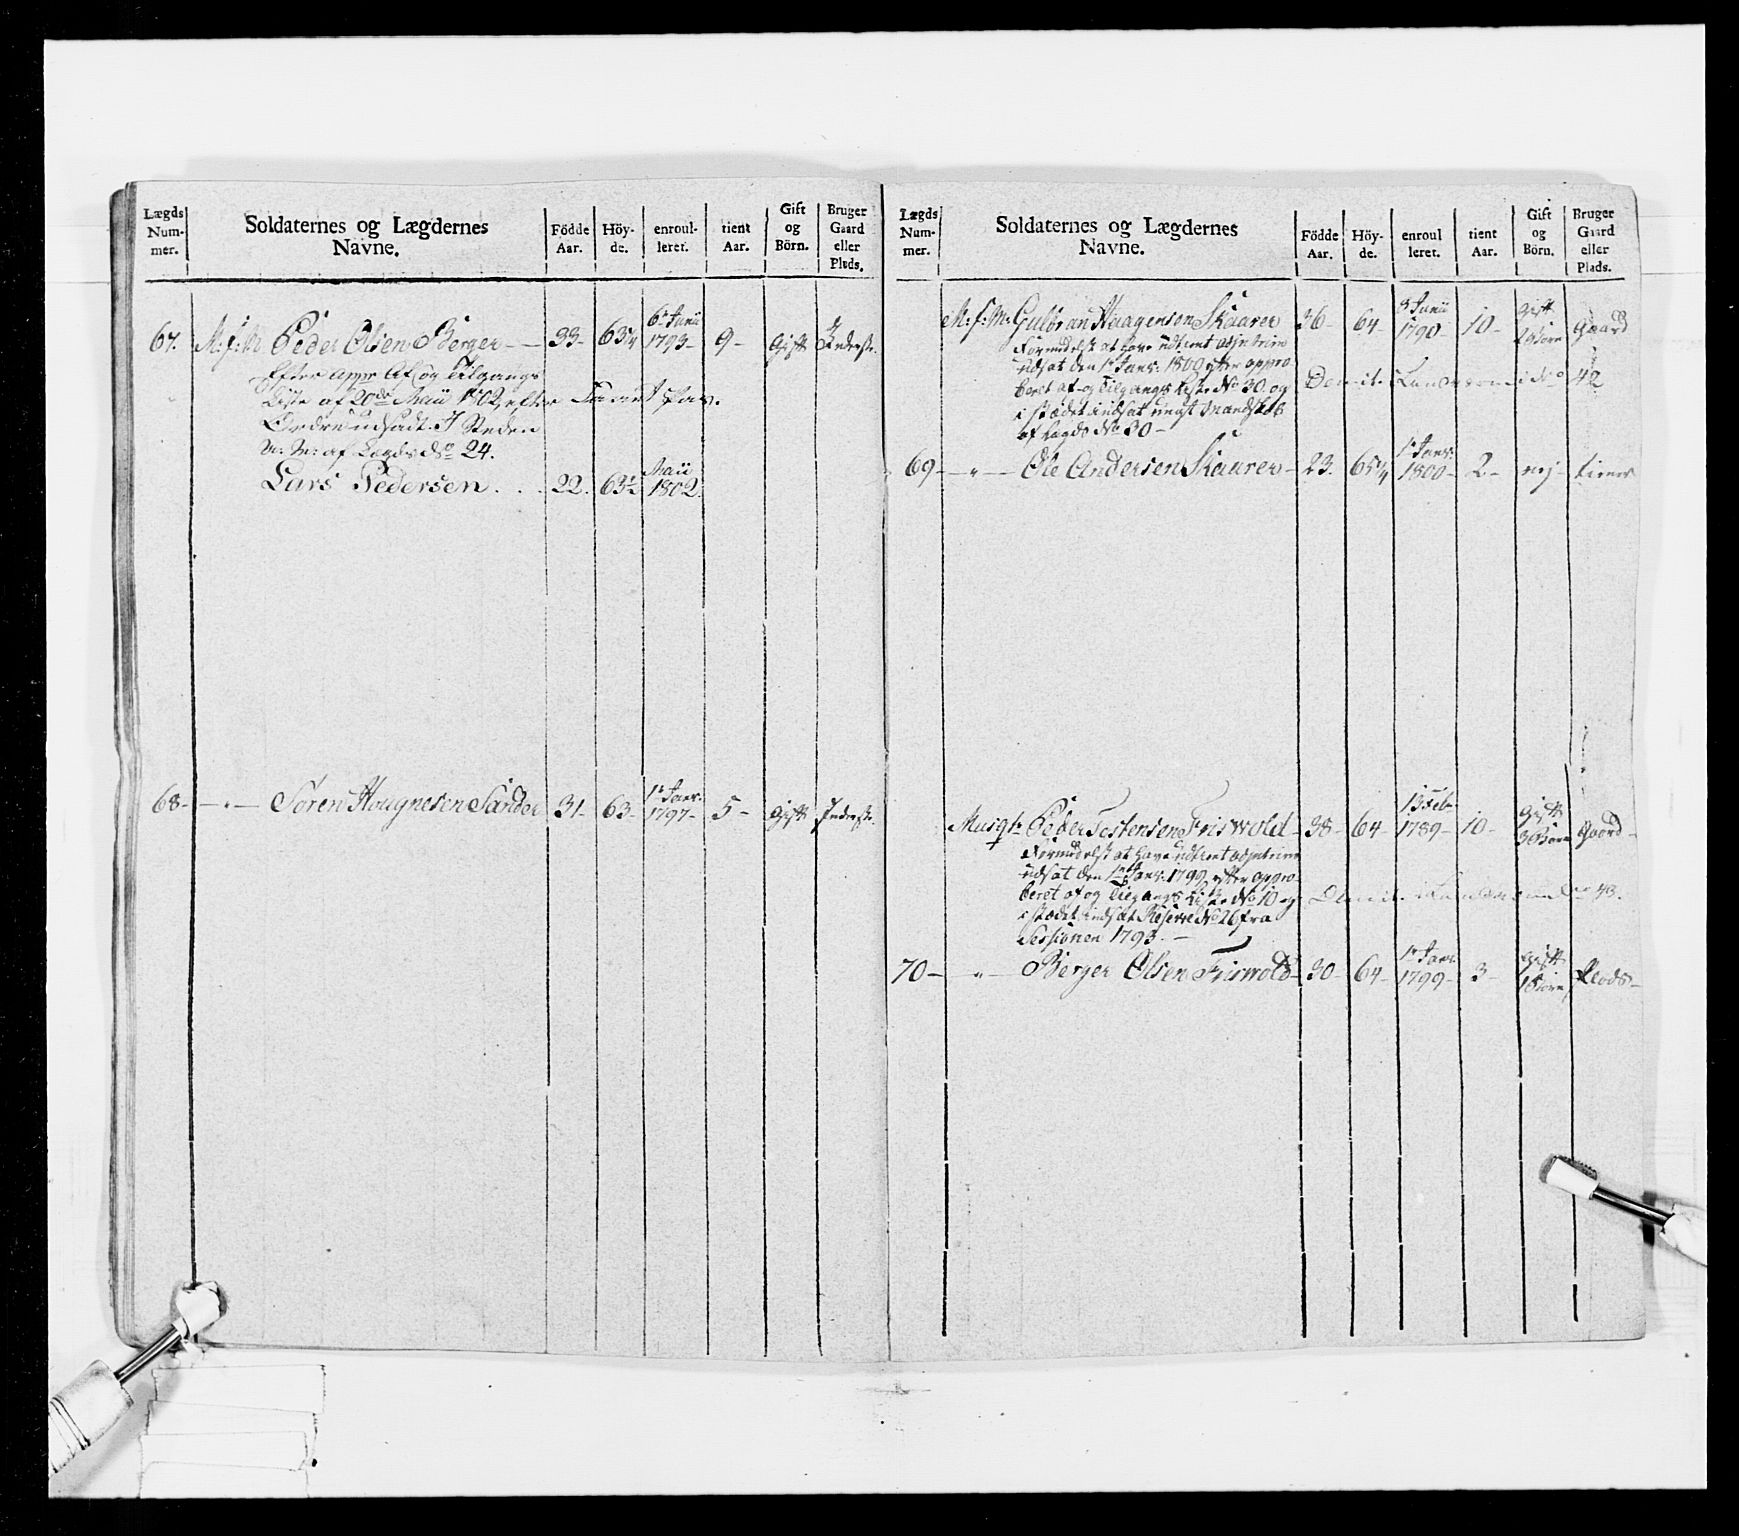 Lægds Num- mer. Soldaternes og Lægdernes Navne. Födde Aar. Höy- de. enroul- leret. tient Aar. Gift og Börn. Bruger Gaard eller Plads.
67. M: f: M: Peder Olsen Berger 33- 63¼ 6te Junii 1793- 9- Gift Inderste.
Efter appr Af og Tilgangs
Liste af 20de Maii 1802, efter
Ordre udsadt. I Steden
af Lægds No 24.
Lars Pedersen 22. 63½ Maii 1802.
68- - " - Soren Hougnesen Sander 31- 63- 1te Janv: 1797- 5- Gift Inderste.
Lægds Num- mer. Soldaternes og Lægdernes Navne. Födde Aar. Höy- de. enroul leret. tient Aar. Gift og Börn. Bruger Gaard eller Plads.
M: f: M: Gulbran Haagensen Skaarer 36- 64- Junii 1790- 10- Gift Börn Gaard
Formedelst at have udtient
udsat den 1te Janv: 1800 efter appro-
beret af- og tilgangs Liste No 30 og
i stædet indsat ungt Mandskab
af Lægds No 80-
69- - " - Ole Andersen Skaarer- 23. 65¼ 1te Janv: 1800- 2- nej- tiener
Musqt: Peder Testensen Friswold- 38- 64- 13 Feb: 1789- 10- Gift 3 Börn Gaard-
Formedelst at have udtient
udsat den 1te Janv: 1799 efter appro-
beret af og tilgangs Liste No 10 og
i stædet indsat Reserve No 26 fra
Sessionen 1793.-
70- - " - Berger Olsen Friswold- 30- 64- 1te Janv: 1799- 3- Gift 1 Börn Plads-